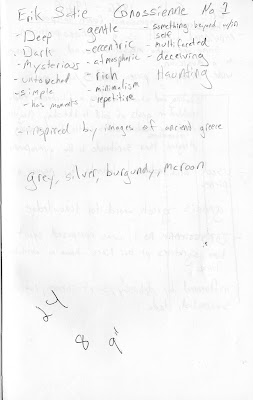 Erik Satie Gnossienne No 1
- Deep
- Dark
- Mysterious
- untouched
- simple
- has moments
- gentle
- eccentric
- atmospheric
- rich
- minimalism
- repetitive
- something beyond
self
- multifaceted
- deceiving
Haunting
- inspired by images of ancient greece
grey, silver, burgundy, maroon
24
8 9"